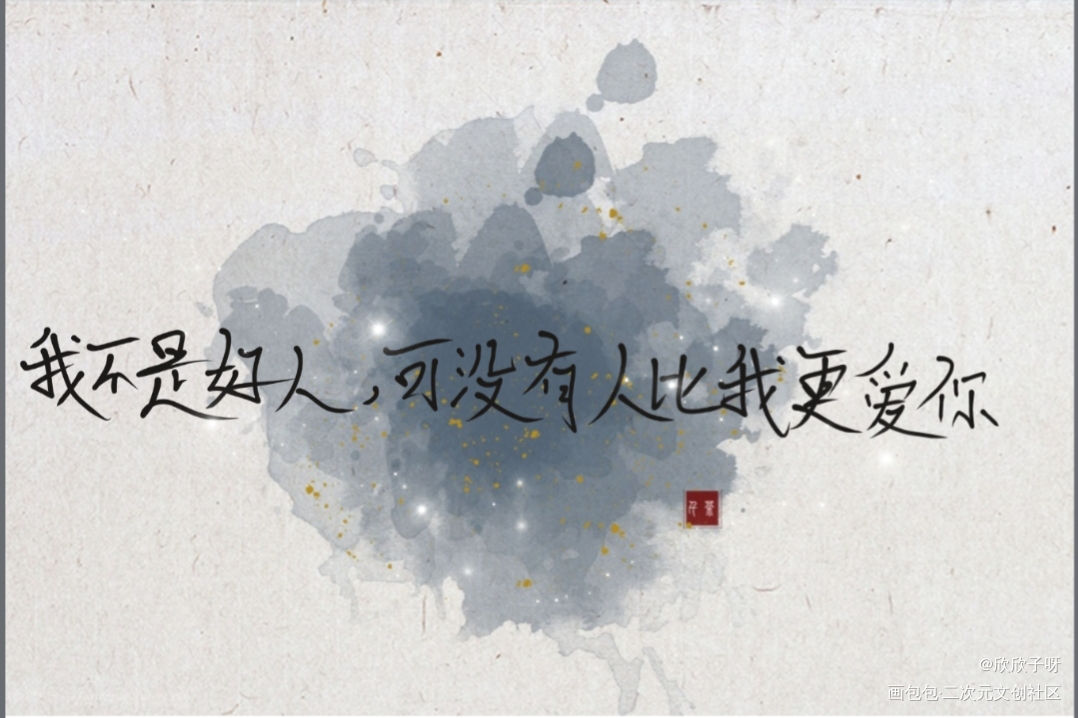 我不是好人，可没有人比我更爱你
@欣欣子呀
画包包·二次元文创社区